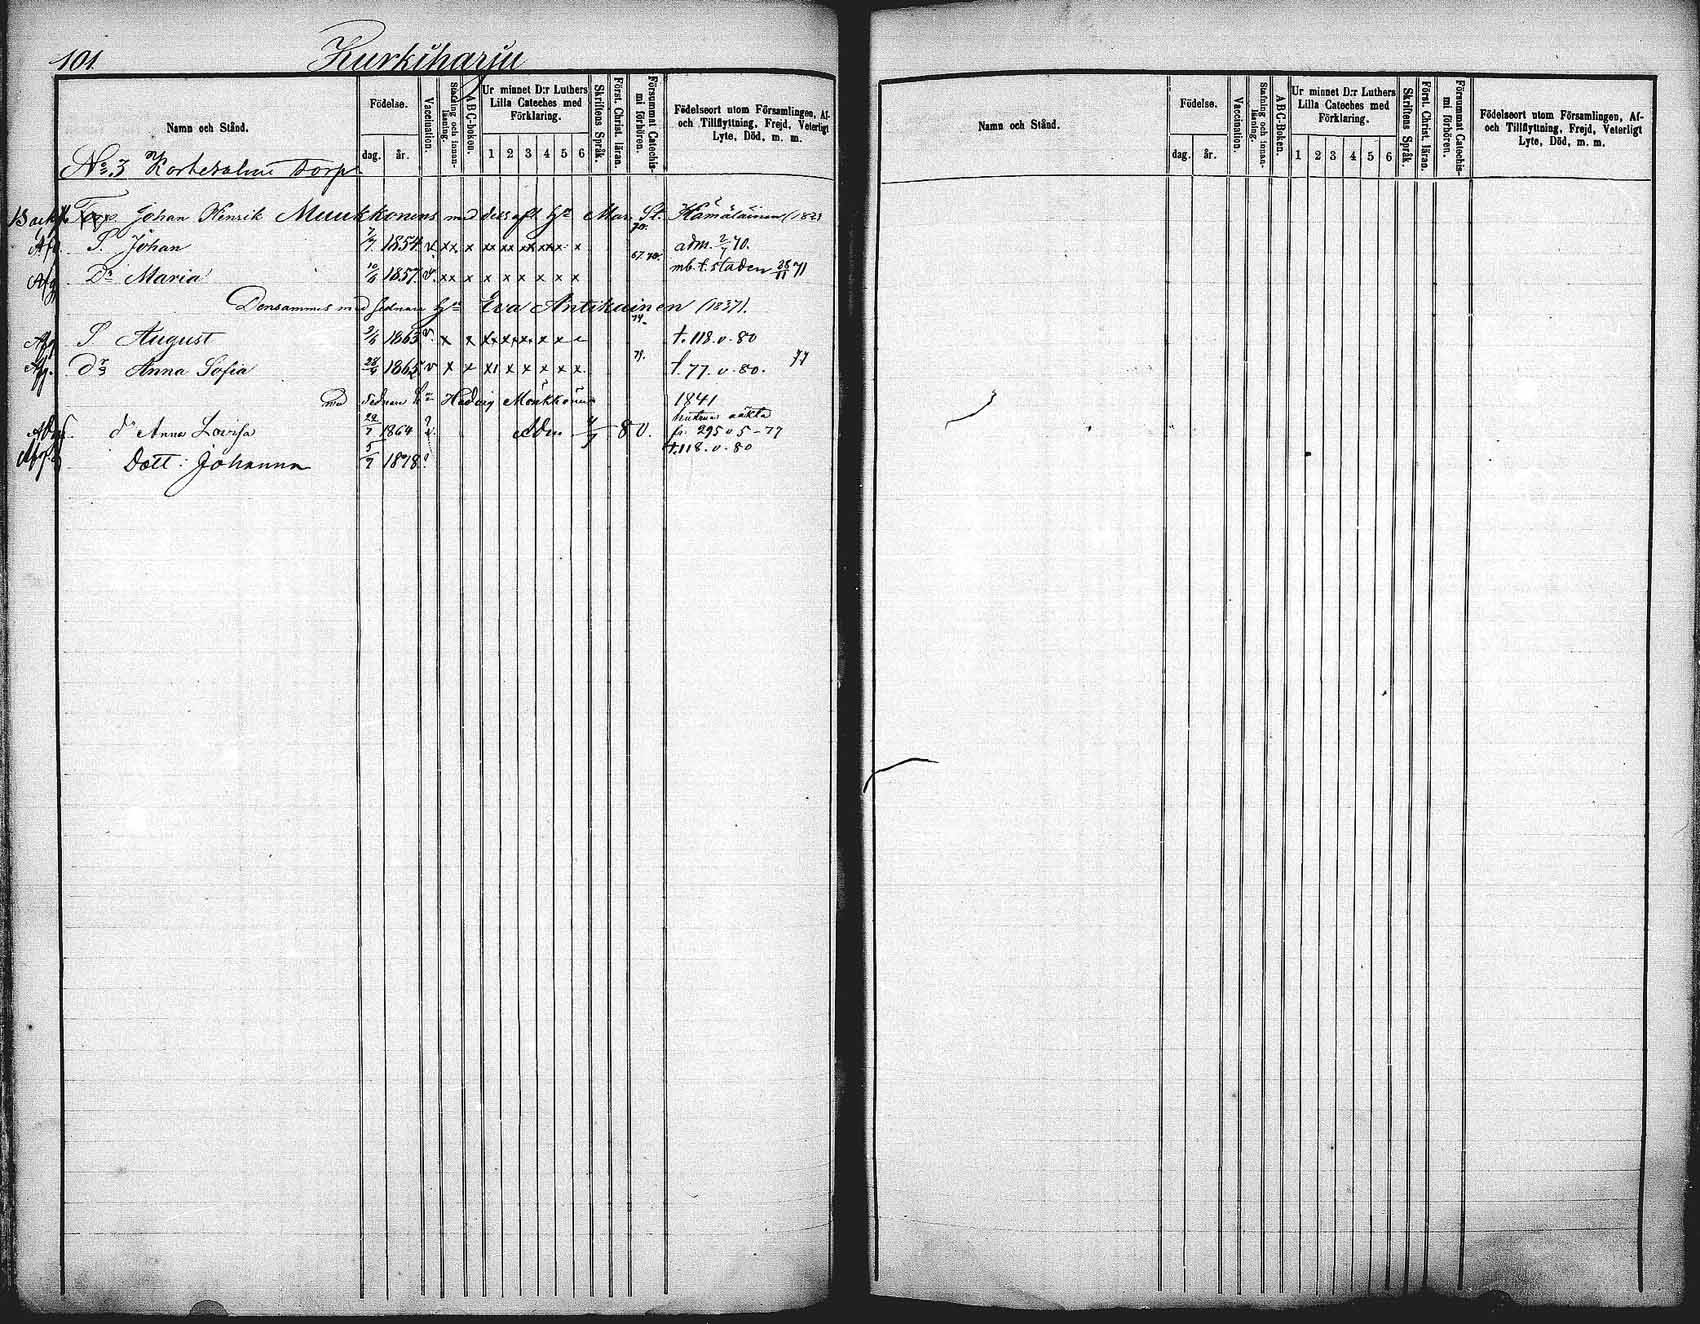 101. Kurkiharju
Namn och Stånd.
Födelse.
dag. år.
Vaccination.
Stafning och innan-läsning.
A B C-boken.
Ur minnet D:r Luthers
Lilla Cateches med
Förklaring.
1 2 3 4 5 6
Skriftens Språk.
Först. Christ. läran.
Försummat Catechis-
mi förhören.
Födelseort utom Församlingen, Af-
och Tillflyttning, Frejd, Veterligt
Lyte, Död, m. m.
No. 3 torp
Johan Henrik Muukkonens med dess afl. Hu Mar. St. Hämäläinen
Afg. S. Johan 7/7 1854 v. xx x xx xx xx xx x x 70. adm. 2/7 70.
Afg. Dr Maria 10/6 1857 v. xx x x x x x x x 67. 70. mb. t. staden 28/11 71
Densammes med sednare Hu Eva Antikainen (1837).
Afg S. August 2/6 1863 v. x x x x x x x t. 118. v. 80
Afg. Dr Anna Sofia 28/9 1865 v x x x x x x x x t. 77. v. 80. 77
med sednare Hu Hedvig Mönkkönen 1841
dr Anna Lovisa 29/7 1864 ? Adm 4/7 80. fr. 295 v 5-77
Dott: Johanna 5/9 1878 ? t. 118. v. 80
Namn och Stånd.
Födelse.
dag. år.
Vaccination.
Stafning och innan-läsning.
A B C-Boken.
Ur minnet D:r Luthers
Lilla Cateches med
Förklaring.
1 2 3 4 5 6
Skriftens Språk.
Först. Christ. läran.
Försummat Catechis-
mi förhören.
Födelseort utom Församlingen, Af-
och Tillflyttning, Frejd, Veterligt
Lyte, Död, m. m.